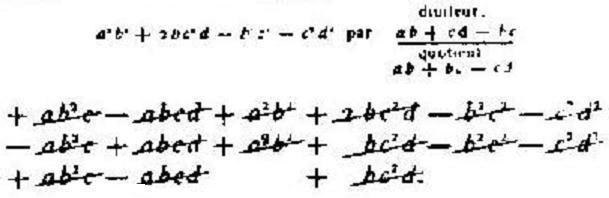 diuiseur.
a²b² + 2bc²d − b²c² − c²d² par ab + cd − bc
quotient
ab + bc − cd
+ ab²c − abcd + a²b² + 2bc²d − b²c² − c²d²
− ab²c + abcd + a²b² + bc²d − b²c² − c²d²
+ ab²c − abcd + bc²d.